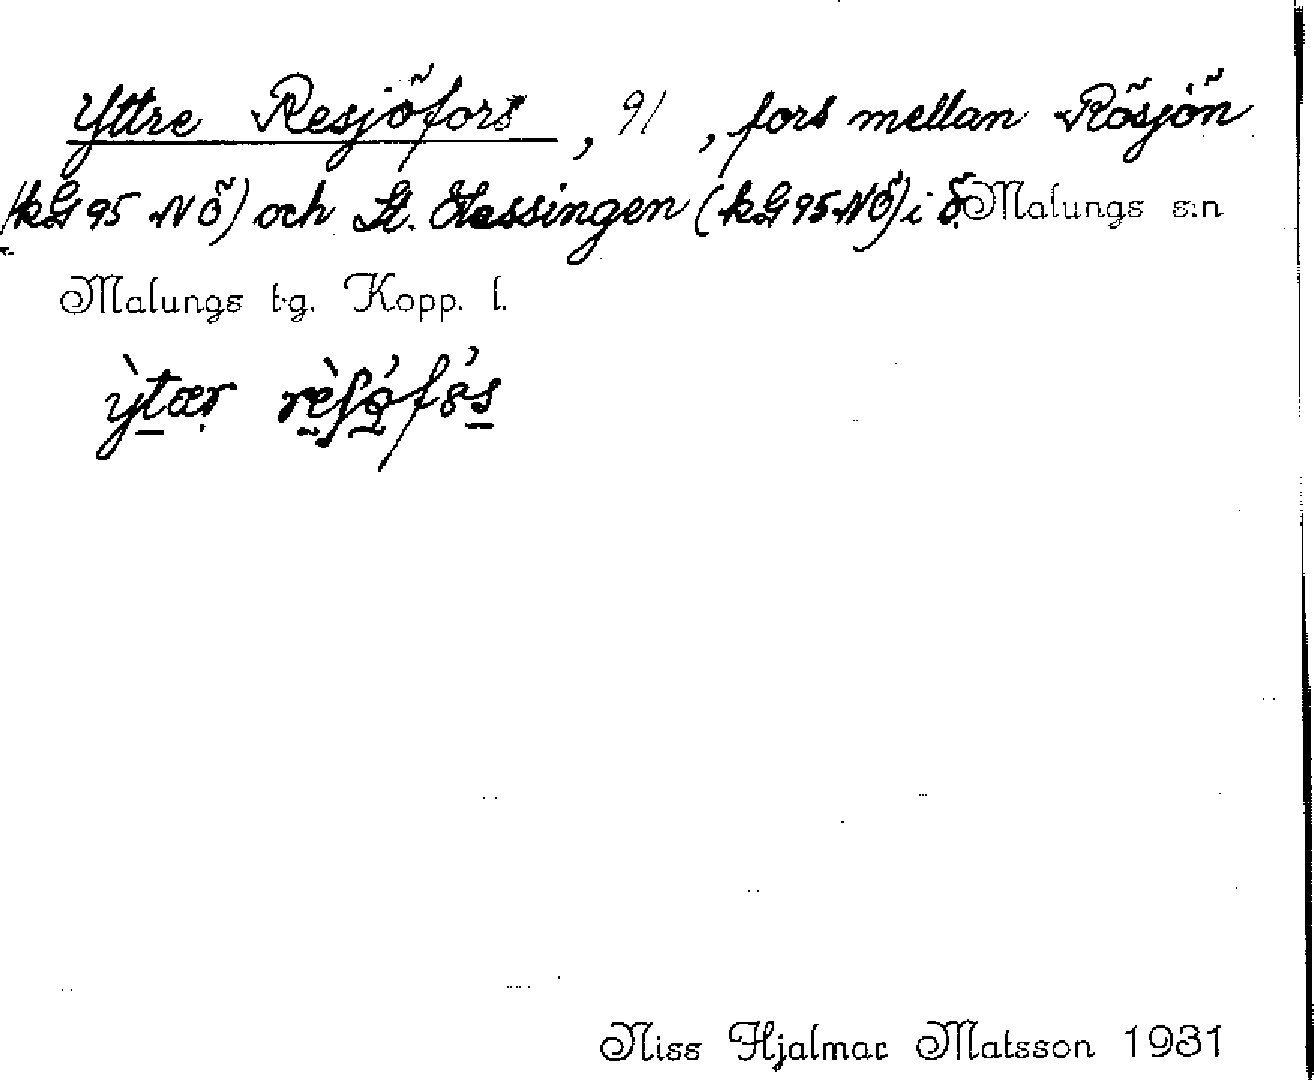 Yttre Resjöfors, 91, fors mellan Rösjön
(kG95 NÖ) och St. Hassingen (kG95 NÖ) i Ö. Malungs s:n
Malungs t-g. Kopp. l.
Niss Hjalmar Matsson 1931